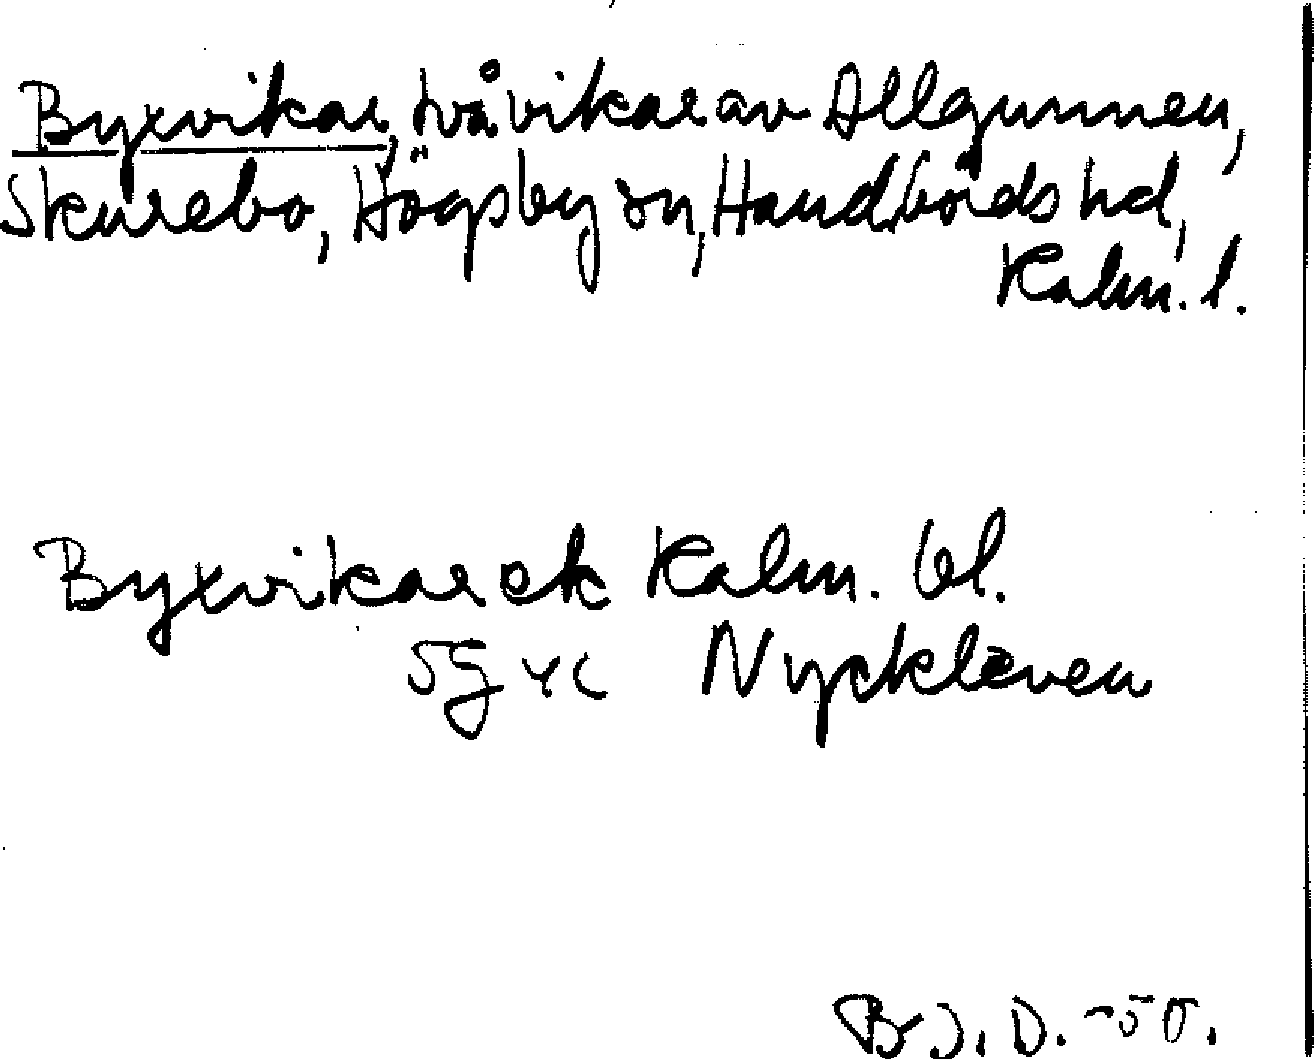 Byxvikar, två vikar av Allgunnen,
Skurebo, Högsby sn, Handbörds hd,
Kalm. l.
Byxvikar ek Kalm. bl.
5G4c Nyckleven
Br J. D. -50.